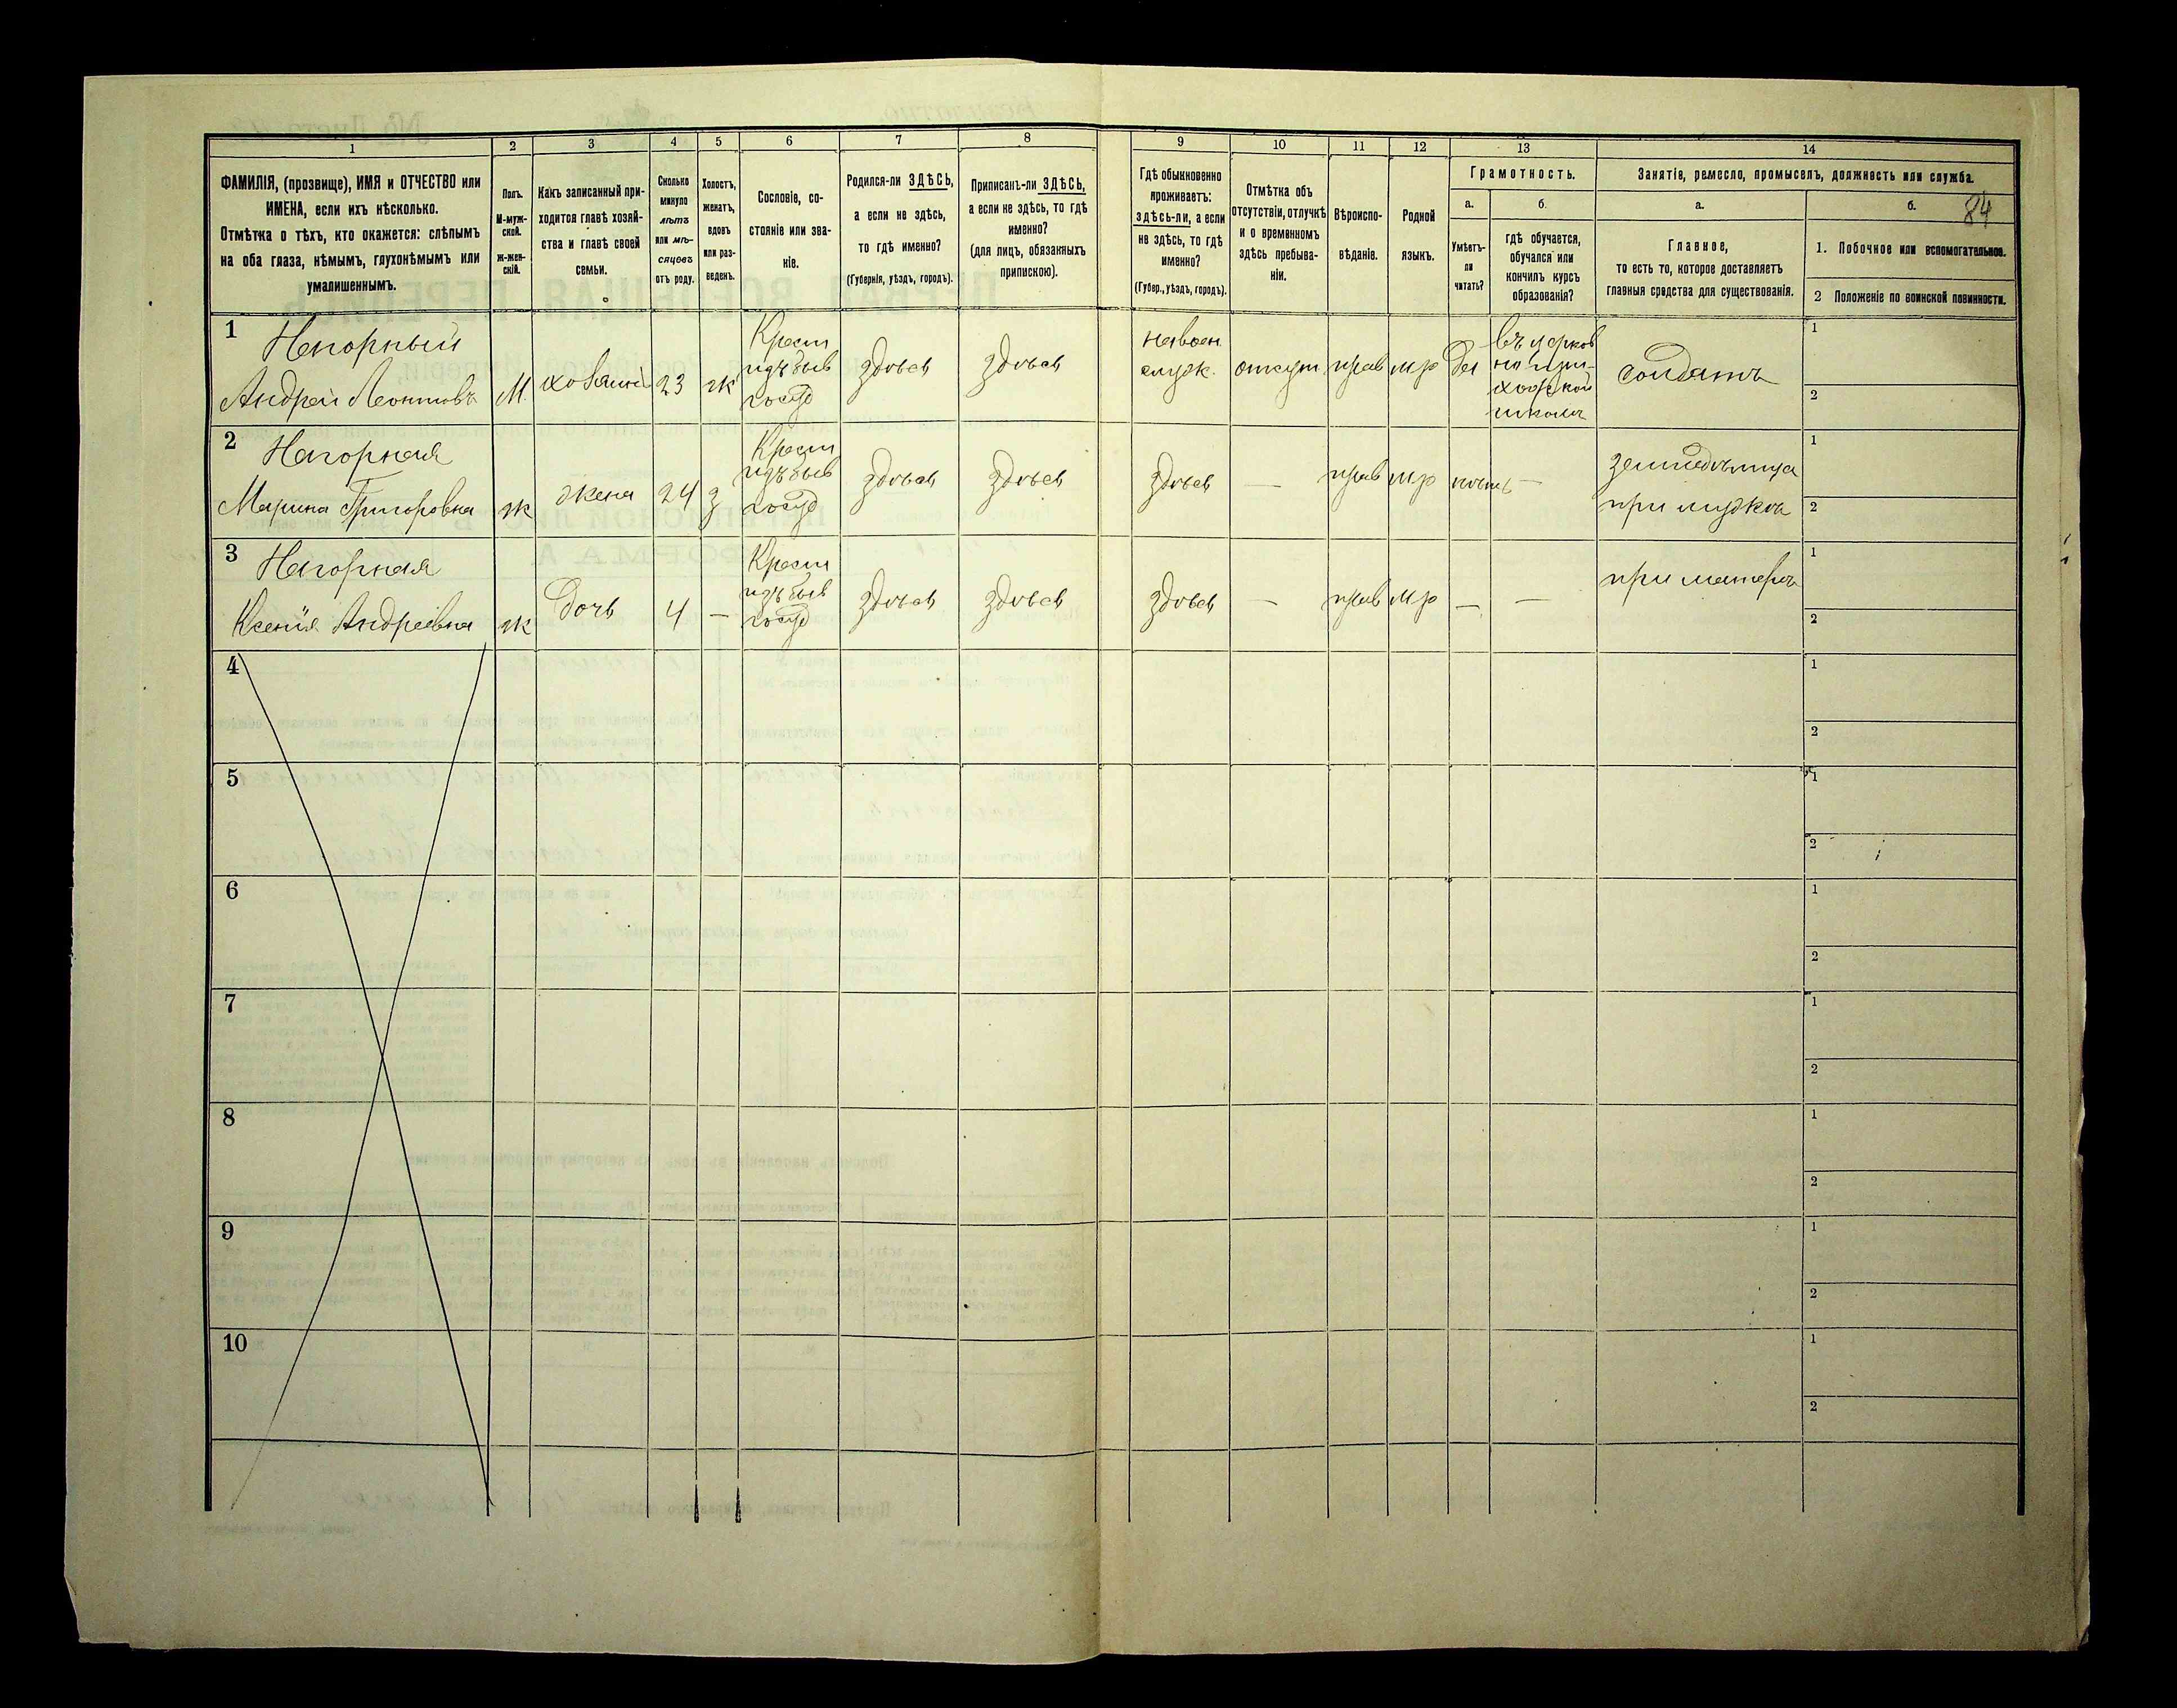 84
1 2 3 4 5 6 7 8 9 10 11 12 13 14
ФАМИЛІЯ, (прозвище), ИМЯ и ОТЧЕСТВО или
ИМЕНА, если ихъ нѣсколько.
Отмѣтка о тѣхъ, кто окажется: слѣпымъ
на оба глаза, нѣмымъ, глухонѣмымъ или
умалишеннымъ.
Полъ.
М-муж-
ской.
ж-жен-
скій.
Какъ записанный при-
ходится главѣ хозяй-
ства и главѣ своей
семьи.
Сколько
минуло
лѣтъ
или мѣ-
сяцовъ
отъ роду.
Холостъ,
женатъ,
вдовъ
или раз-
веденъ.
Сословіе, со-
стояніе или зва-
ніе.
Родился-ли ЗДѢСЬ,
а если не здѣсь,
то гдѣ именно?
(Губернія, уѣздъ, городъ).
Приписанъ-ли ЗДѢСЬ,
а если не здѣсь, то гдѣ
именно?
(для лицъ, обязанныхъ
припискою).
Гдѣ обыкновенно
проживаетъ:
здѣсь-ли, а если
не здѣсь, то гдѣ
именно?
(Губер., уѣздъ, городъ).
Отмѣтка объ
отсутствіи, отлучкѣ
и о временномъ
здѣсь пребыва-
ніи.
Вѣроиспо-
вѣданіе.
Родной
языкъ.
Грамотность.
а.
Умѣетъ-
ли
читать?
б.
гдѣ обучается,
обучался или
кончилъ курсъ
образованія?
Занятіе, ремесло, промыселъ, должность или служба.
а.
Главное,
то есть то, которое доставляетъ
главныя средства для существованія.
б.
1. Побочное или вспомогательное.
2 Положеніе по воинской повинности.
1
Нагорный
Андрей Леонтіовъ
М
хозяинъ
23
ж
Крест
изъ быв
госуд
здѣсь
здѣсь
на воен
служ.
отсут
прав
мр
да
въ церков
но при-
ходской
школѣ
солдатъ
1
2
2
Нагорная
Марина Григоровна
ж
жена
24
з
Крест
изъ быв
госуд
здѣсь
здѣсь
здѣсь
—
прав
мр
—
земледѣлица
при мужѣ
1
2
3
Нагорная
Ксенія Андреевна
ж
дочь
4
—
Крест
изъ быв
госуд
здѣсь
здѣсь
здѣсь
—
прав
мр
—
—
при матерѣ
1
2
4
1
2
5
1
2
6
1
2
7
1
2
8
1
2
9
1
2
10
1
2